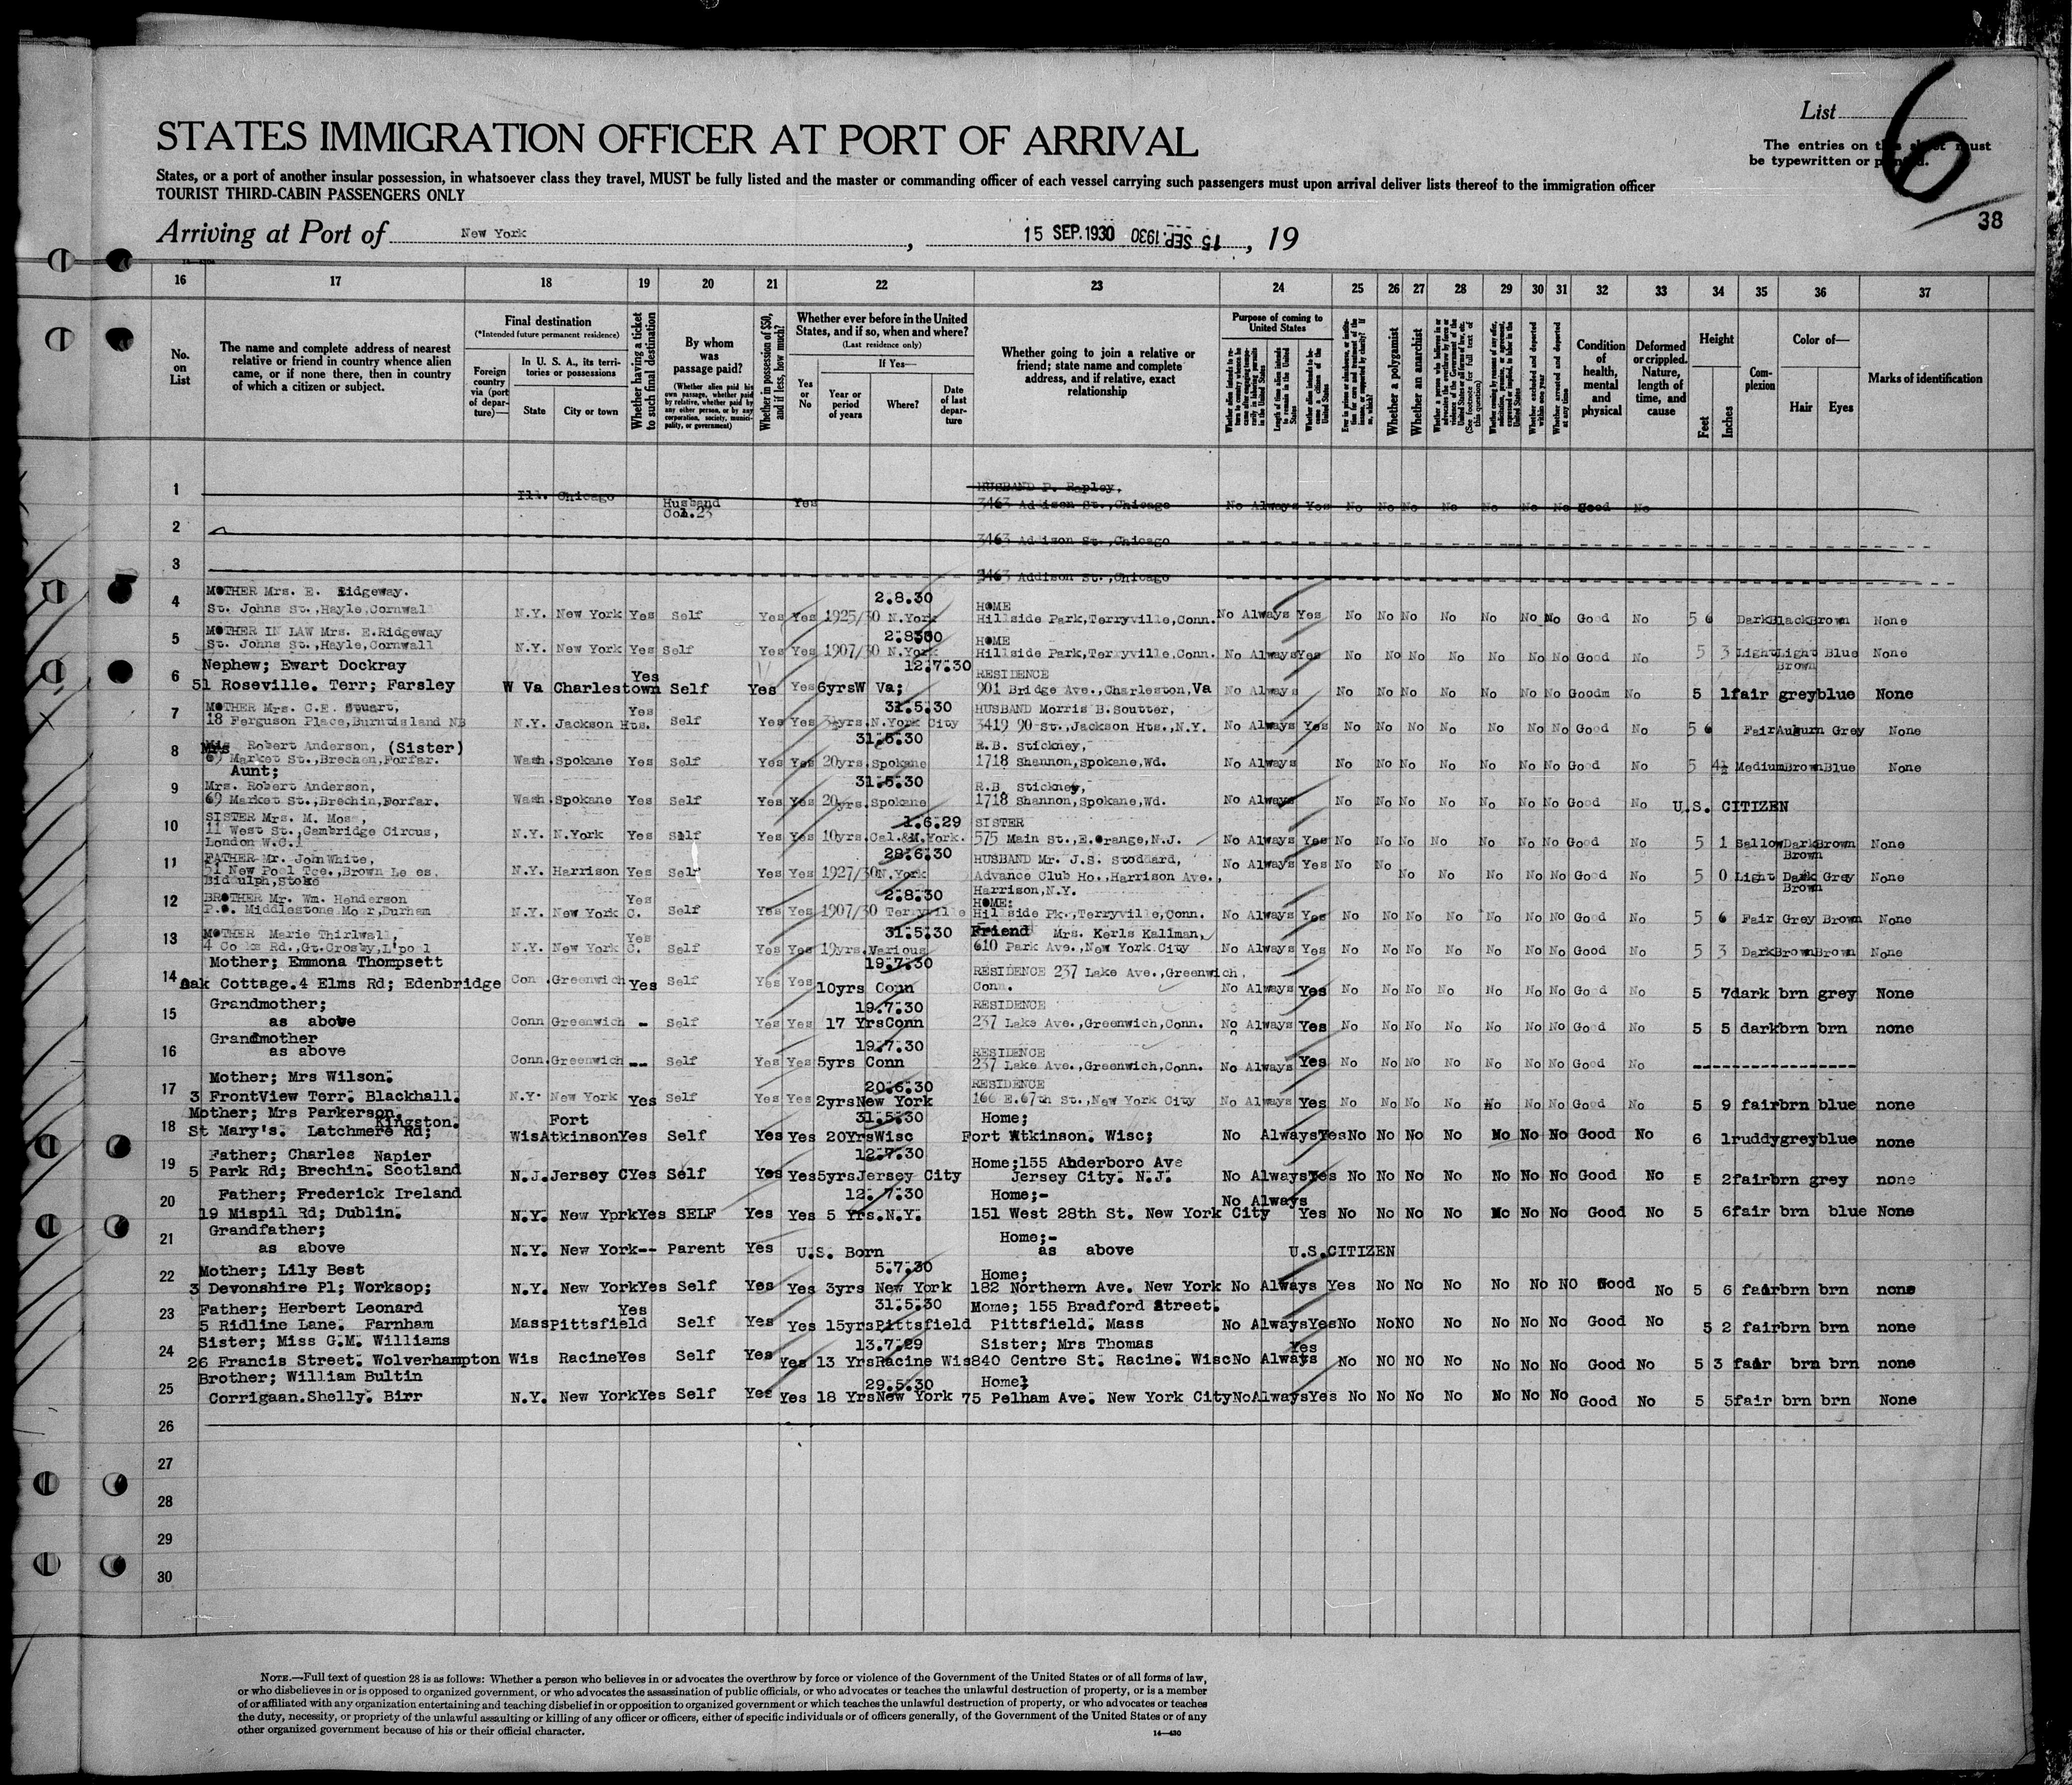 List 6
STATES IMMIGRATION OFFICER AT PORT OF ARRIVAL
The entries on this sheet must
be typewritten or printed.
States, or a port of another insular possession, in whatsoever class they travel, MUST be fully listed and the master or commanding officer of each vessel carrying such passengers must upon arrival deliver lists thereof to the immigration officer
TOURIST THIRD-CABIN PASSENGERS ONLY
38
Arriving at Port of New York, 15 SEP. 1930 15 SEP. 1930, 19
16 17 18 19 20 21 22 23 24 25 26 27 28 29 30 31 32 33 34 35 36 37
No. on List
The name and complete address of nearest relative or friend in country whence alien came, or if none there, then in country of which a citizen or subject.
Final destination
(*Intended future permanent residence)
Foreign country via (port of departure)—
In U. S. A., its territories or possessions
State
City or town
Whether having a ticket to such final destination
By whom was passage paid?
(Whether alien paid his own passage, whether paid by relative, whether paid by any other person, or by any corporation, society, municipality, or government)
Whether in possession of $50, and if less, how much?
Whether ever before in the United States, and if so, when and where?
(Last residence only)
Yes or No
If Yes—
Year or period of years
Where?
Date of last departure
Whether going to join a relative or friend; state name and complete address, and if relative, exact relationship
Purpose of coming to United States
Length of time alien intends to remain in the United States
Whether alien intends to become a citizen of the United States
Whether a polygamist
Whether an anarchist
Whether excluded and deported within one year
Whether arrested and deported at any time
Condition of health, mental and physical
Deformed or crippled. Nature, length of time, and cause
Height
Feet
Inches
Complexion
Color of—
Hair
Eyes
Marks of identification
1 Ill. Chicago Husband Col.23 Yes HUSBAND P. Rapley, 3463 Addison St.,Chicago No Always Yes No No No No No No No Good No
2 3463 Addison St.,Chicago
3 3463 Addison St.,Chicago
4 MOTHER Mrs. E. Ridgeway. 2.8.30 HOME
St. Johns St.,Hayle,Cornwall N.Y. New York Yes Self Yes Yes 1925/30 N.York Hillside Park,Terryville,Conn. No Always Yes No No No No No No No Good No 5 6 Dark Black Brown None
5 MOTHER IN LAW Mrs. E.Ridgeway 2.8.30 HOME
St. Johns St.,Hayle,Cornwall N.Y. New York Yes Self Yes Yes 1907/30 N.York Hillside Park,Terryville,Conn. No Always Yes No No No No No No No Good No 5 3 Light Light Brown Blue None
6 Nephew; Ewart Dockray Yes 12.7.30 RESIDENCE
51 Roseville. Terr; Farsley W Va Charlestown Self Yes Yes 6yrs W Va; 901 Bridge Ave.,Charleston,Va No Always No No No No No No No Goodm No 5 1 fair grey blue None
7 MOTHER Mrs. C.E. Stuart, Yes 31.5.30 HUSBAND Morris B.Soutter,
18 Ferguson Place,Burntisland NB N.Y. Jackson Hts. Self Yes Yes yrs.N.York City 3419 90 St.,Jackson Hts.,N.Y. No Always Yes No No No No No No No Good No 5 6 Fair Auburn Grey None
8 Mrs Robert Anderson, (Sister) 31.5.30 R.B. Stickney,
69 Market St.,Brechen,Forfar. Wash.Spokane Yes Self Yes Yes 20yrs.Spokane 1718 Shannon,Spokane,Wd. No Always No No No No No No No Good No 5 4½ Medium Brown Blue None
9 Aunt; 31.5.30 R.B Stickney,
Mrs. Robert Anderson,
69 Market St.,Brechin,Forfar. Wash.Spokane Yes Self Yes Yes 20yrs.Spokane 1718 Shannon,Spokane,Wd. No Always No No No No No No No Good No U.S. CITIZEN
10 SISTER Mrs. M. Moss, 1.6.29 SISTER
11 West St.,Cambridge Circus, N.Y. N.York Yes Self Yes Yes 10yrs.Cal.&N.York. 575 Main St.,E.Orange,N.J. No Always Yes No No No No No No No Good No 5 1 Sallow Dark Brown Brown None
London W.C.1
11 FATHER Mr. John White, 28.6.30 HUSBAND Mr. J.S. Stoddard,
51 New Pool Tce.,Brown Lees, N.Y. Harrison Yes Self Yes Yes 1927/30 N.York Advance Club Ho.,Harrison Ave., No Always Yes No No No No No No No Good No 5 0 Light Dark Brown Grey None
Biddulph,Stoke Harrison,N.Y.
12 BROTHER Mr. Wm. Henderson Yes 2.8.30 HOME:
P.O. Middlestone Moor,Durham N.Y. New York C. Self Yes Yes 1907/30 Terryville Hillside Pk.,Terryville,Conn. No Always Yes No No No No No No No Good No 5 6 Fair Grey Brown None
13 MOTHER Marie Thirlwall, Yes 31.5.30 Friend Mrs. Kerls Kallman,
Rd.,Gt.Crosby,L'pool N.Y. New York C. Self Yes Yes 19yrs.Various 610 Park Ave.,New York City No Always Yes No No No No No No No Good No 5 3 Dark Brown Brown None
14 Mother; Emmona Thompsett 19.7.30 RESIDENCE 237 Lake Ave.,Greenwich,
Oak Cottage.4 Elms Rd; Edenbridge Con .Greenwich Yes Self Yes Yes 10yrs Conn Conn. No Always Yes No No No No No No No Good No 5 7 dark brn grey None
15 Grandmother; 19.7.30 RESIDENCE
as above Conn Greenwich - Self Yes Yes 17 Yrs Conn 237 Lake Ave.,Greenwich,Conn. No Always Yes No No No No No No No Good No 5 5 dark brn brn none
16 Grandmother 19.7.30 RESIDENCE
as above Conn.Greenwich -- Self Yes Yes 5yrs Conn 237 Lake Ave.,Greenwich,Conn. No Always Yes No No No No No No No Good No ----------------
17 Mother; Mrs Wilson. 20.6.30 RESIDENCE
3 FrontView Terr. Blackhall. N.Y. New York Yes Self Yes Yes 2yrs New York 166 E.67th St.,New York City No Always Yes No No No No No No No Good No 5 9 fair brn blue none
18 Mother; Mrs Parkerson. Kingston. Fort 31.5.30 Home;
St Mary's. Latchmere Rd; Wis Atkinson Yes Self Yes Yes 20Yrs Wisc Fort Atkinson. Wisc; No Always Yes No No No No No No No Good No 6 1 ruddy grey blue none
19 Father; Charles Napier 12.7.30 Home;155 Anderboro Ave
5 Park Rd; Brechin. Scotland N.J. Jersey C Yes Self Yes Yes 5yrs Jersey City Jersey City. N.J. No Always Yes No No No No No No No Good No 5 2 fair brn grey none
20 Father; Frederick Ireland 12.7.30 Home;- No Always
19 Mispil Rd; Dublin. N.Y. New Yprk Yes SELF Yes Yes 5 Yrs.N.Y. 151 West 28th St. New York City Yes No No No No No No No Good No 5 6 fair brn blue None
21 Grandfather; Home;-
as above N.Y. New York-- Parent Yes U.S. Born as above U.S.CITIZEN
22 Mother; Lily Best 5.7.30 Home;
3 Devonshire Pl; Worksop; N.Y. New York Yes Self Yes Yes 3yrs New York 182 Northern Ave. New York No Always Yes No No No No No NO Good No 5 6 fair brn brn none
23 Father; Herbert Leonard Yes 31.5.30 Mome; 155 Bradford Street.
5 Ridline Lane. Farnham Mass Pittsfield Self Yes Yes 15yrs Pittsfield Pittsfield. Mass No Always Yes No No NO No No No No Good No 5 2 fair brn brn none
24 Sister; Miss G.M. Williams 13.7.29 Sister; Mrs Thomas Yes
26 Francis Street. Wolverhampton Wis Racine Yes Self Yes Yes 13 Yrs Racine Wis 840 Centre St. Racine. Wisc No Always No NO NO No No No No Good No 5 3 fair brn brn none
25 Brother; William Bultin 29.5.30 Home;
Corrigaan.Shelly. Birr N.Y. New York Yes Self Yes Yes 18 Yrs New York 75 Pelham Ave. New York City No Always Yes No No No No No No No Good No 5 5 fair brn brn None
26
27
28
29
30
NOTE.—Full text of question 28 is as follows: Whether a person who believes in or advocates the overthrow by force or violence of the Government of the United States or of all forms of law,
or who disbelieves in or is opposed to organized government, or who advocates the assassination of public officials, or who advocates or teaches the unlawful destruction of property, or is a member
of or affiliated with any organization entertaining and teaching disbelief in or opposition to organized government or which teaches the unlawful destruction of property, or who advocates or teaches
the duty, necessity, or propriety of the unlawful assaulting or killing of any officer or officers, either of specific individuals or of officers generally, of the Government of the United States or of any
other organized government because of his or their official character.
14—430